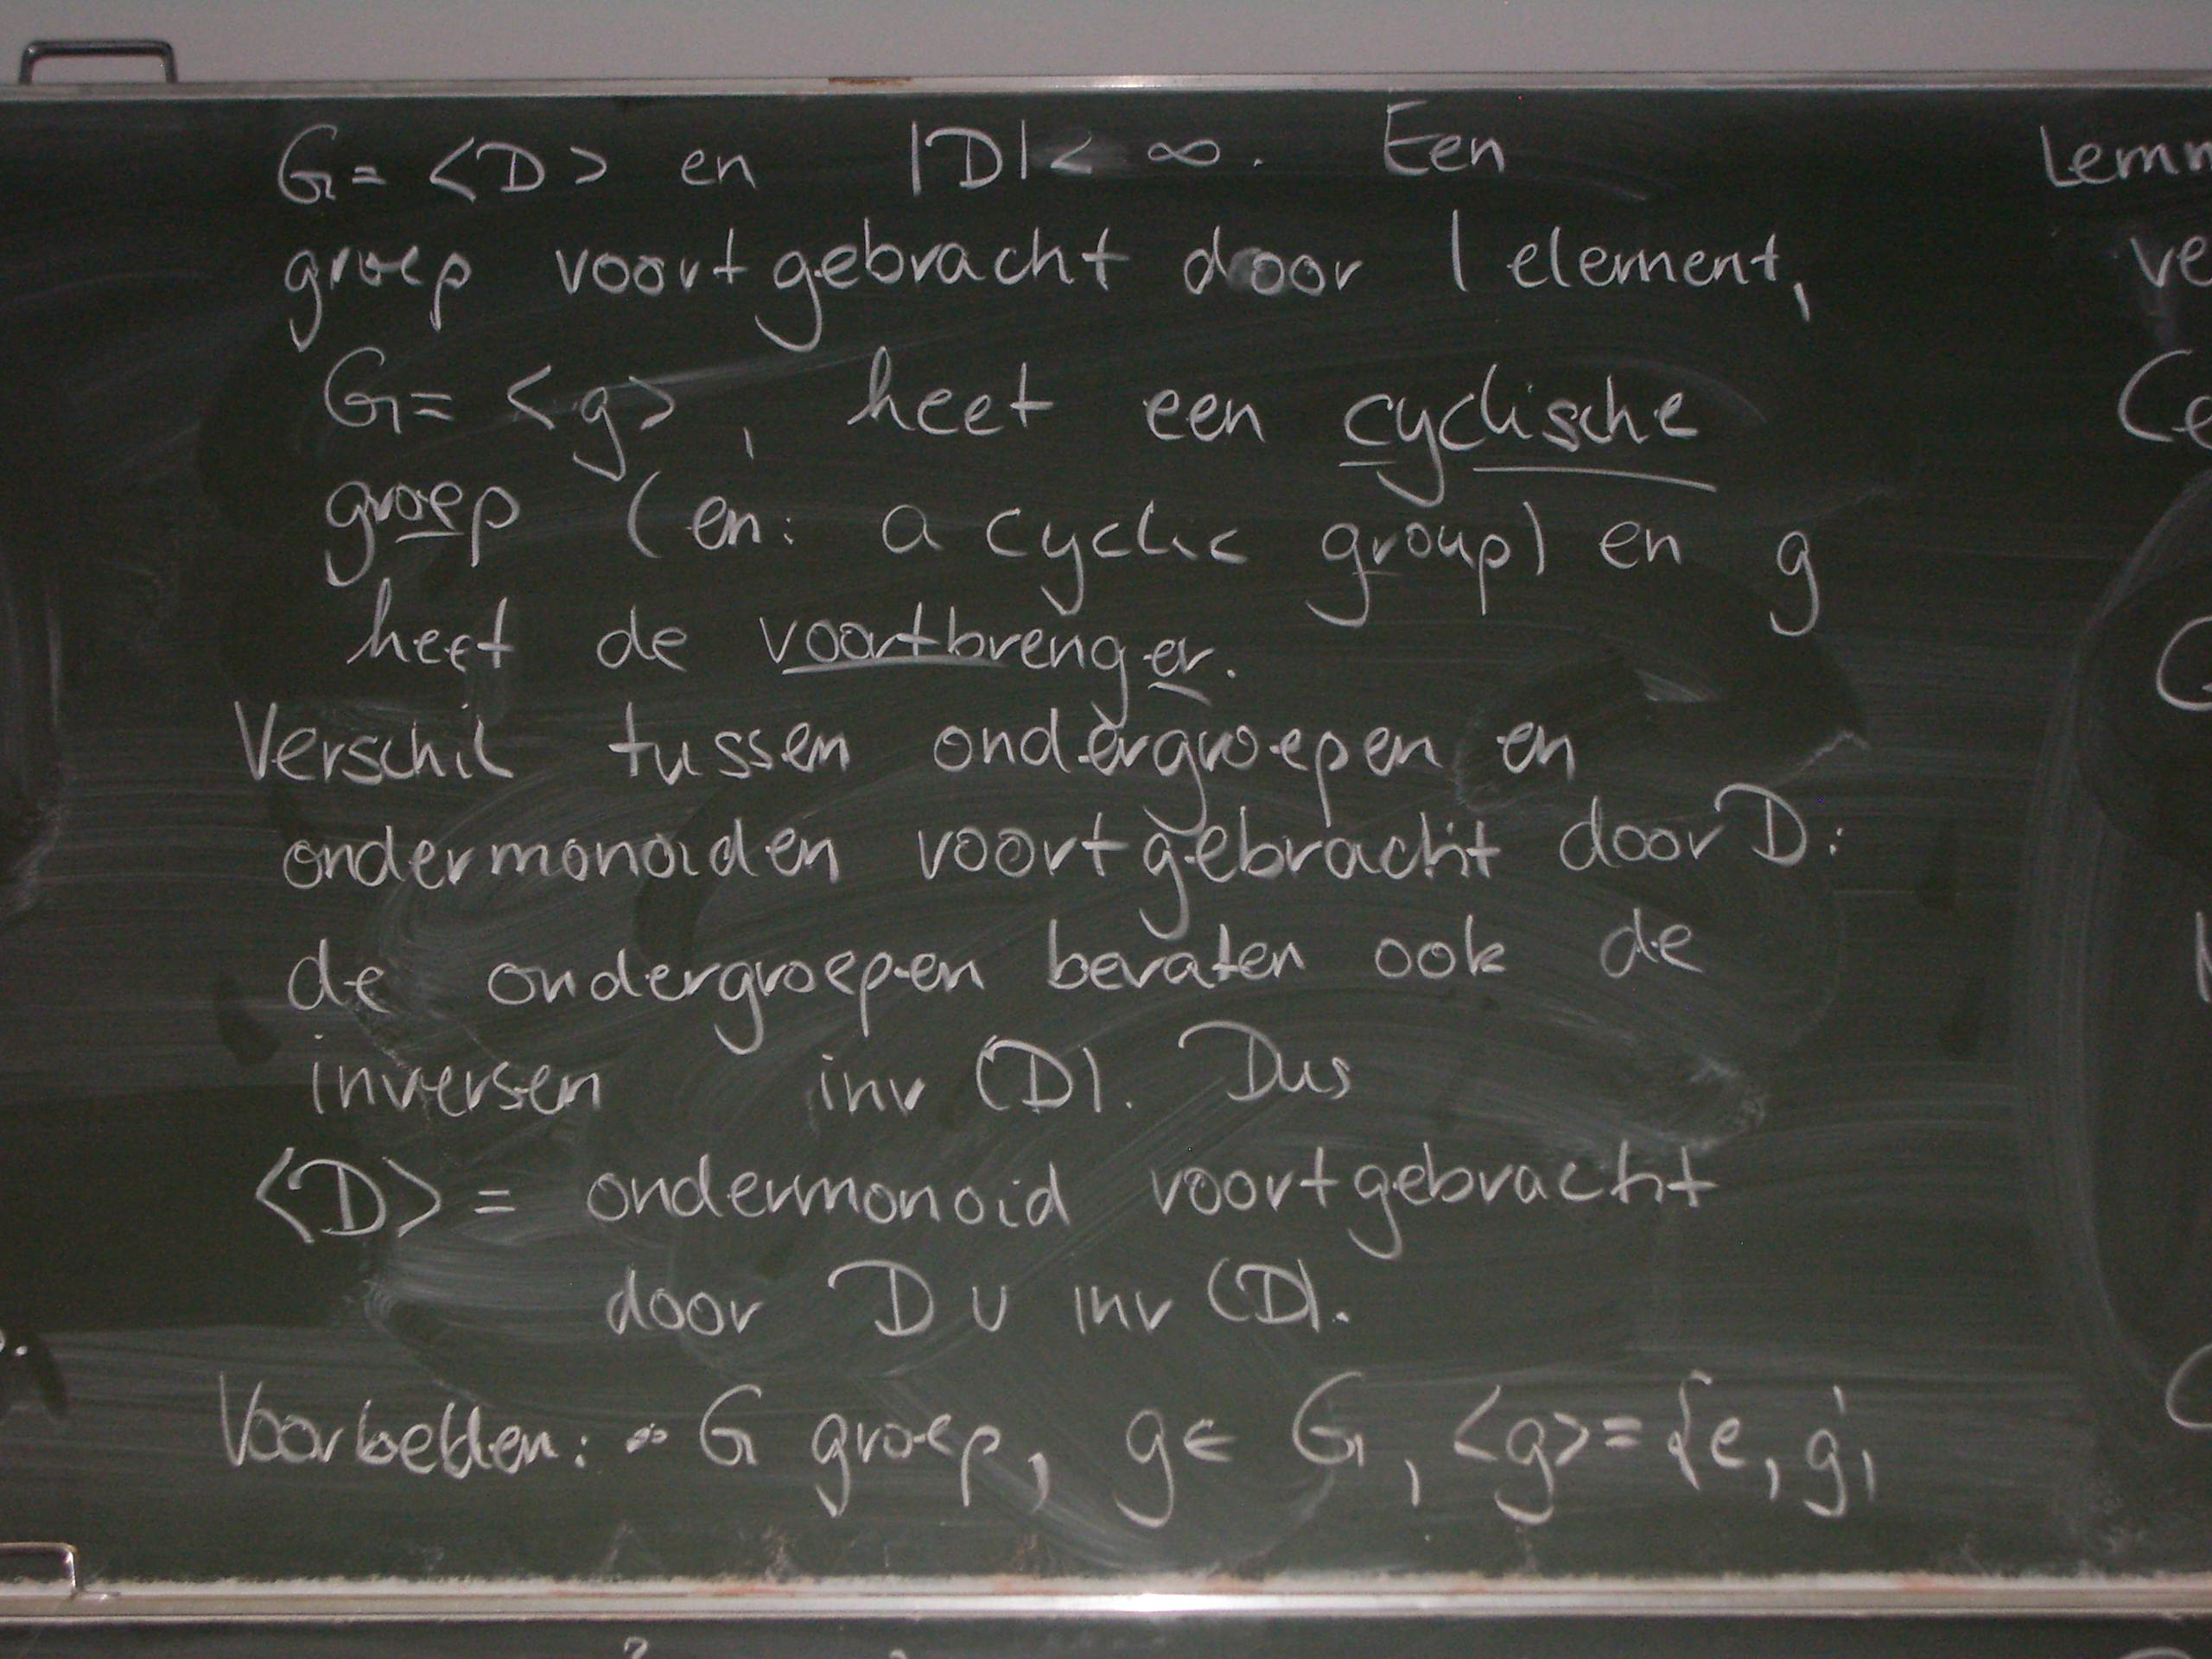 G = <D> en |D| < ∞. Een
groep voortgebracht door 1 element,
G = <g>, heet een cyclische
groep (en: a cyclic group) en g
heet de voortbrenger.
Verschil tussen ondergroepen en
ondermonoiden voortgebracht door D:
de ondergroepen bevaten ook de
inversen inv (D). Dus
<D> = ondermonoid voortgebracht
door D ∪ inv (D).
Voorbeelden: G groep, g ∈ G, <g> = {e, g,
Lemm
ve